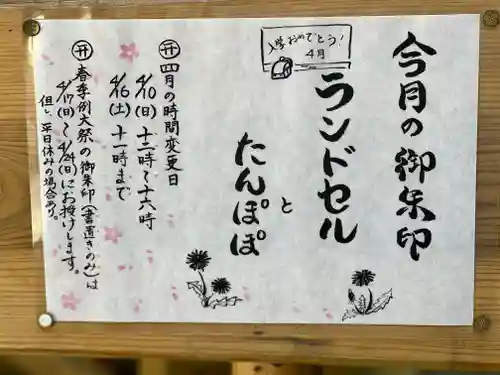 今月の御朱印
入学おめでとう!
4月
ランドセル
と
たんぽぽ
四月の時間変更日
4/10(日) 十二時〜十六時
4/16(土) 十一時まで
春季例大祭の御朱印(書置きのみ)は
4/17(日)〜4/24(日)にお授けします。
但し、平日休みの場合あり。